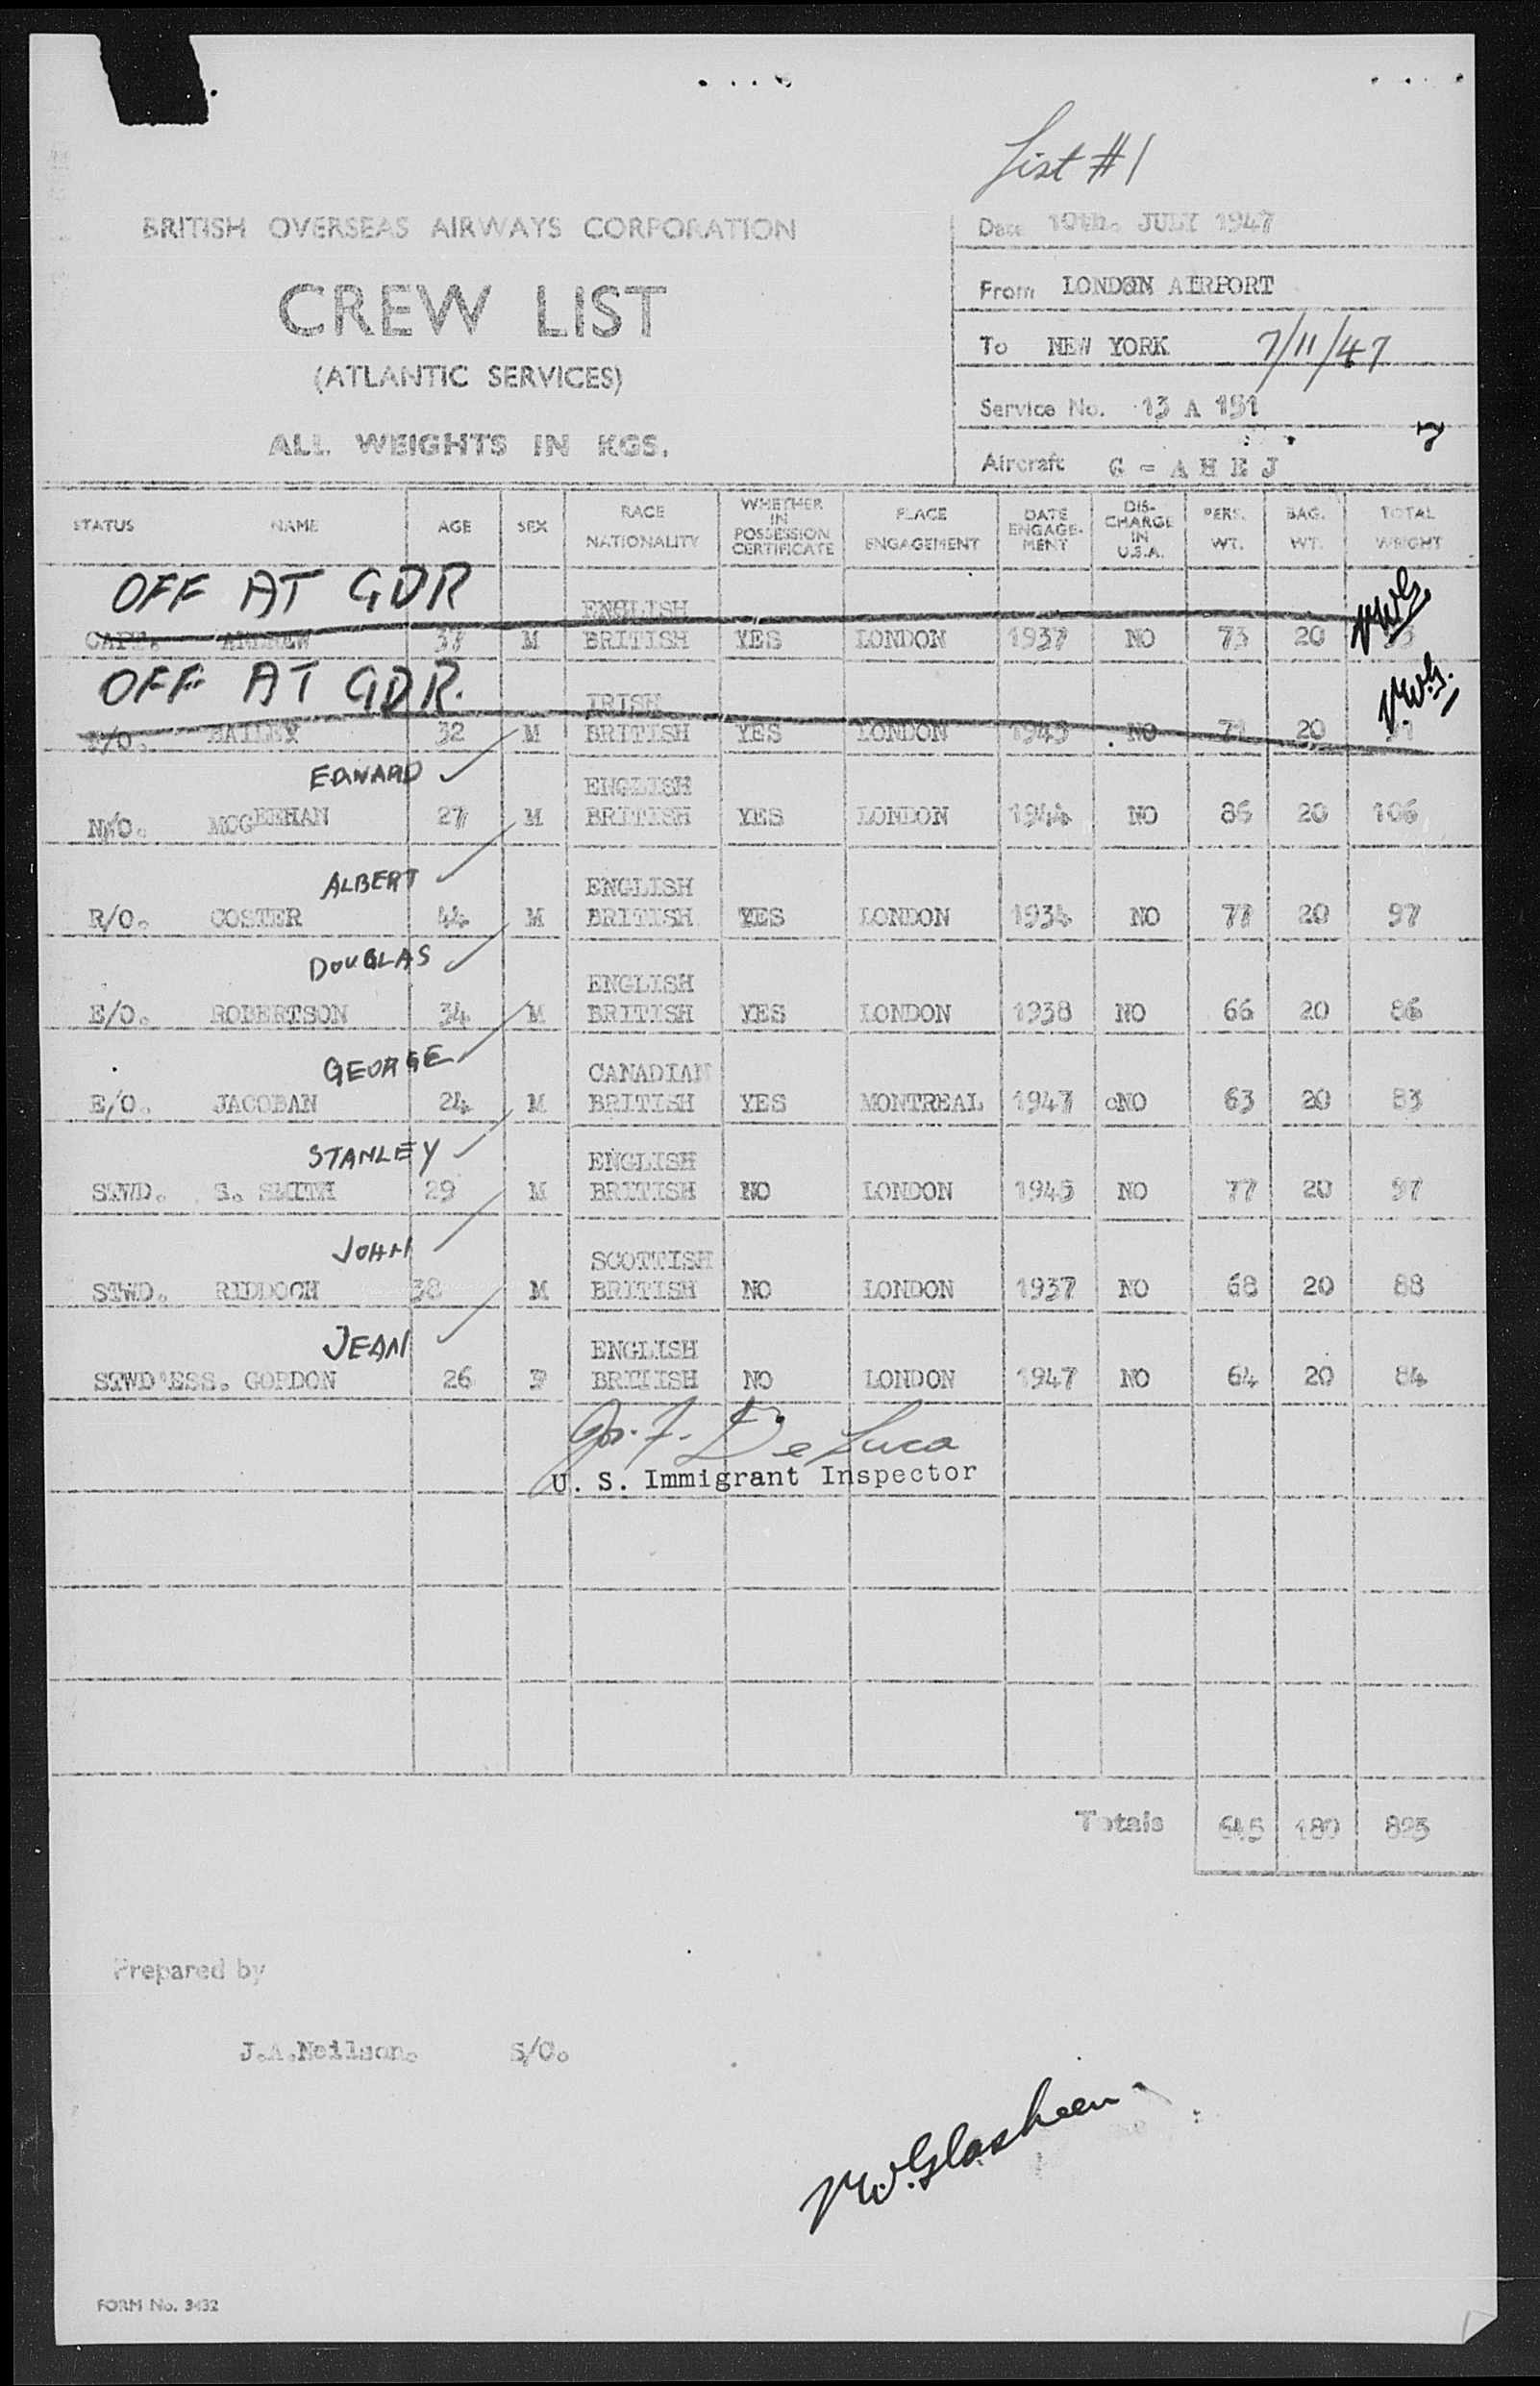 List #1
BRITISH OVERSEAS AIRWAYS CORPORATION
CREW LIST
(ATLANTIC SERVICES)
ALL WEIGHTS IN KGS.
Date 10th. JULY 1947
From LONDON AIRPORT
To NEW YORK 7/11/47
Service No. 13 A 151
7
Aircraft G - A H E J
STATUS NAME AGE SEX RACE NATIONALITY WHETHER IN POSSESSION CERTIFICATE PLACE ENGAGEMENT DATE ENGAGE-MENT DIS-CHARGE IN U.S.A. PERS. WT. BAG. WT. TOTAL WEIGHT
OFF AT GDR
ENGLISH
CAPT. ANDREW 37 M BRITISH YES LONDON 1937 NO 73 20
OFF AT GDR.
IRISH
BAILEY 32 M BRITISH YES LONDON 1943 NO 71 20
EDWARD ENGLISH
N/O. MCGEEHAN 27 M BRITISH YES LONDON 1944 NO 86 20 106
ALBERT ENGLISH
R/O. COSTER 44 M BRITISH YES LONDON 1934 NO 77 20 97
DOUGLAS ENGLISH
E/O. ROBERTSON 34 M BRITISH YES LONDON 1938 NO 66 20 86
GEORGE CANADIAN
E/O. JACOBAN 24 M BRITISH YES MONTREAL 1947 NO 63 20 83
STANLEY ENGLISH
STWD. S. SMITH 29 M BRITISH NO LONDON 1945 NO 77 20 97
JOHN SCOTTISH
STWD. RIDDOCH 38 M BRITISH NO LONDON 1937 NO 68 20 88
JEAN ENGLISH
STWD'ESS. GORDON 26 F BRITISH NO LONDON 1947 NO 64 20 84
Jos. F. De Luca
U. S. Immigrant Inspector
Totals 645 180 825
Prepared by
J.A.Neilson. S/O.
FORM No. 3432